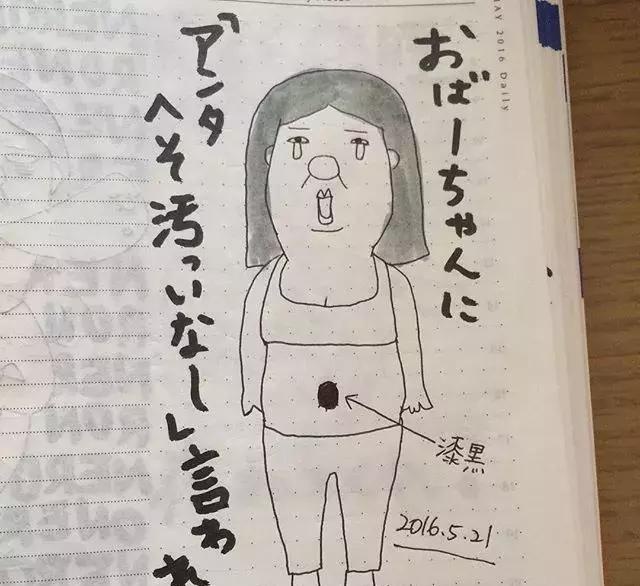 MAY 2016 Daily
おばーちゃんに
「アンタ
へそ汚っいなし」言われ
漆黒
2016.5.21